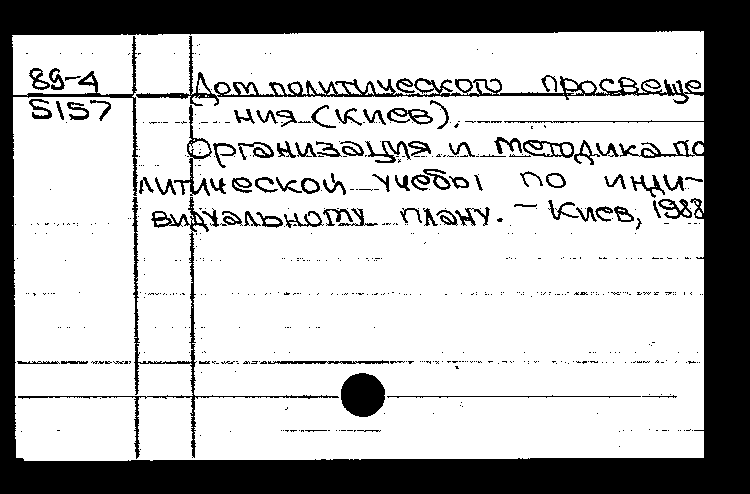 89-4
5157
Дом политического просвеще
ния (Киев).
Организация и методика по
литической учебы по инди-
видуальному плану. - Киев, 1988